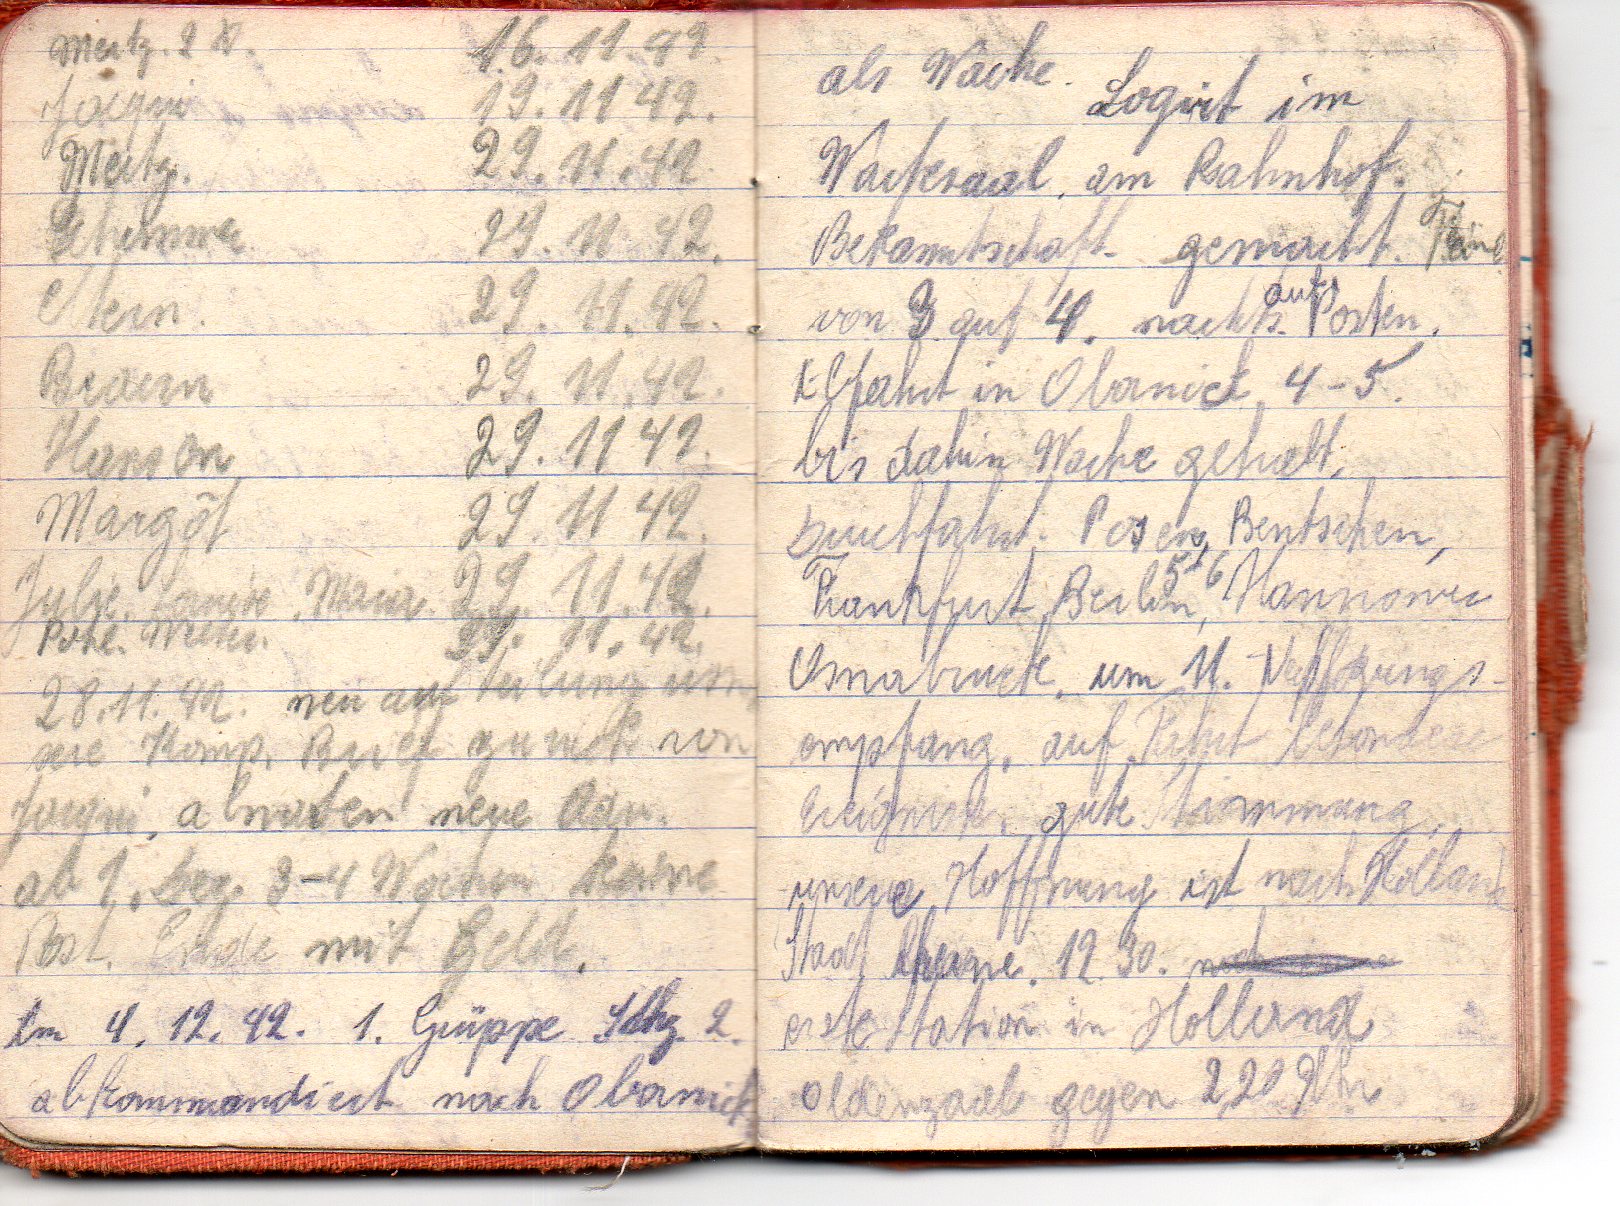 Mertz. 2 x. 16. 11. 42.
Jaqui 19. 11 42.
Mertz. 29. 11. 42
Schemmer 29. 11 42.
Stein. 29. 11. 42.
Braun 29. 11. 42.
Hanson 29. 11 42.
Margot 29. 11 42.
Julie. Maria 29. 11. 42.
29. 11. 42.
28. 11. 42. neu aufteilung uns
ere Komp. Brief zurück von
Jaqui, neue Adr.
ab 1. Dez. 3-4 Wochen keine
Post. Ende mit Geld.
Am 4. 12. 42. 1. Grüppe Schz. 2.
abkommandiert nach Obornick
als Wache. Logirt im
Wartesaal, am Bahnhof.
Bekanntschaft gemacht.
von 3 auf 4. nachts auf Posten.
Abfahrt in Obornick 4-5.
bis dahin Wache gehalt.
Durchfahrt. Posen, Bentschen,
Frankfurt, Berlin, 5-6 Hannower
Osnabruck. um 11. Verpflegungs-
empfang, auf Fahrt besondere
Ereignisse, gute Stimmung
unsere Hoffnung ist nach Holland
Stadt Rheine. 12. 30. noch
erste Station in Holland
Oldenzaal gegen 2 20 Uhr